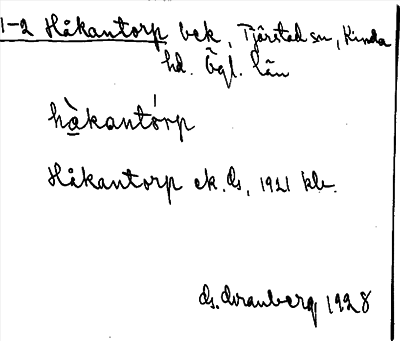 1-2 Håkantorp bek, Tjärstad sn, Kinda
hd. Ögl. län
hàkantórp
Håkantorp ek. ds, 1921 kbr.
ds. Granberg 1928